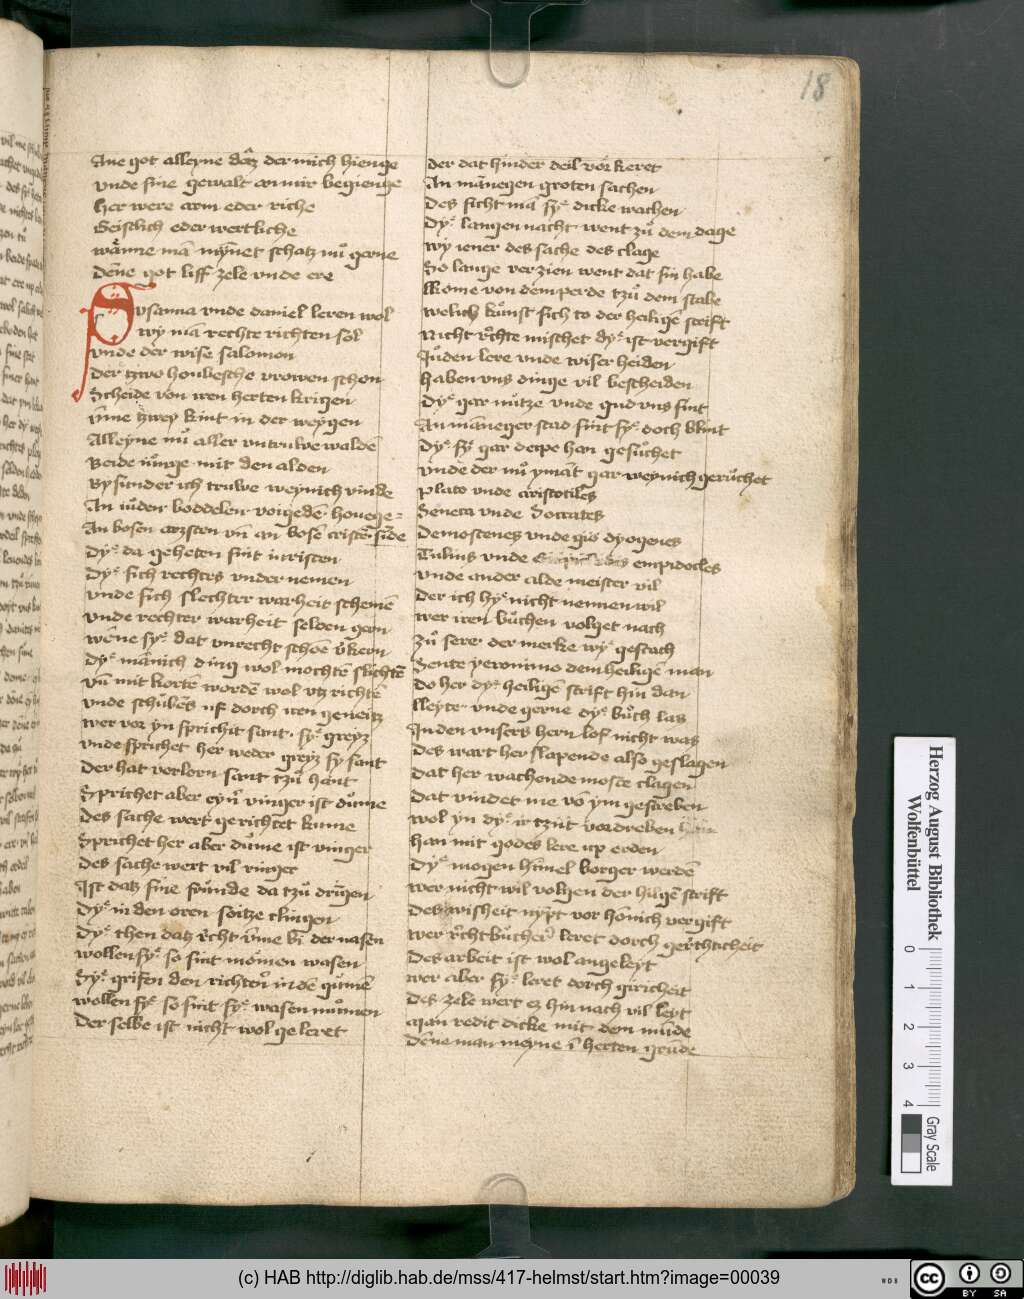 18
Ane got alleyne datz der mich hienge
vnde sine gewalt an mir begienge
Her were arm eder riche
Geistlich eder wertliche
wanne mā mynnet schatz nů gerne
Dēne got liff zele vnde ere
Susanna vnde daniel leren wol
wy mā rechte richten sol
vnde der wise salomon
Der tzwo houbesche vrowen schon
Scheide von iren herten krigen
vmme tzwey kint in der weygen
Alleyne nů aller vntruwe waldē
Beide iůnge mit den alden
By sunder ich truwe weynich vinde
An iůden boddelen voigedē houege
An bosen arzsten vñ an bosē cristē sinde
Dyͤ da geheten sint iuristen
Dyͤ sich rechtes vnder nemen
vnde sich slechter warheit schemē
vnde rechter warheit selden gern
wēne syͤ dat vnrecht schōe v̄kern
Dyͤ mānich ding wol mochtē slichtē
vñ mit kortē wordē wol vtz richtē
vnde schulēs uf dorch iren geneitz
wer vor yn sprichit sant syͤ greyz
vnde sprichet her weder greyz sy sant
Der hat verlorn sant tzů hant
Sprichet aber eyñ vinger ist dume
Des sache wert gerichtet kume
Sprichet her aber dume ist vinger
Des sache wert vil ringer
Ist datz sine frunde da tzů dringen
Dyͤ in den oren soitze clingen
Dyͤ then datz recht vmme bi der nasen
wollen syͤ so sint mōmen wasen
Syͤ grifen den richter in dē gumē
wollen syͤ so sint syͤ wasen mumen
Der selbe ist nicht wol geleret
Der dat hinder deil vor keret
An mānegen groten sachen
Des sicht mā syͤ dicke wachen
Dyͤ langen nacht went zů dem dage
wy iener des sache des clage
So lange verzien went dat sin habe
Kome von dem perde tzů dem stabe
welich kůnst sich to der heiligē scrift
Nicht rechte mischet dyͤ ist vergift
Jůden lere vnde wiser heiden
Haben vns dinge vil bescheiden
Dyͤ gar nůtze vnde gud vns sint
An māneger stad sint syͤ doch blint
Dyͤ syͤ gar deepe han gesůchet
vnde der nů ymāt gar weynich gerůchet
Plato vnde aristotiles
Seneca vnde Socrates
Demostenes vnde gis dyogenes
Tulius vnde empidocles
vnde ander alde meister vil
Der ich hyͤ nicht nennen wil
wer iren bůchen volget nach
zů sere der merke wyͤ geschach
Sente yeronimo dem heiligē man
Do her dyͤ heiligē scrift hin dan
lleyte vnde gerne dyͤ bůch las
In den vnsers hern lof nicht was
Des wart her slapende also geslagen
Dat her wachende moste clagen
Dat vindet me vō ym gescreben
wol yn dyͤ ir tzůt vordreben
han mit godes lere up erden
Dyͤ mogen himel borger werdē
wer nicht wil volgen der hilgē scrift
Des wisheit nypt vor honich vergift
wer recht bůcher leret dorch gerechticheit
Des arbeit ist wol angeleyt
wer aber syͤ leret dorch giricheit
Des zele wert ez hin nach vil leyt
Man redit dicke mit dem mūde
Dēne man meyne ī herten grūde
Herzog August Bibliothek
Wolfenbüttel
0 1 2 3 4
Gray Scale
(c) HAB http://diglib.hab.de/mss/417-helmst/start.htm?image=00039
WDB
cc
BY SA